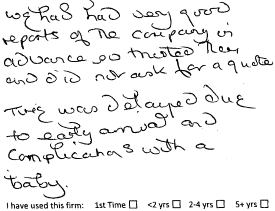 we had had very good
reports of the company in
advance so trusted them
and did not ask for a quote
Time was delayed due
to early arrival and
complications with a
baby.
I have used this firm: 1st Time ☐ <2 yrs ☐ 2-4 yrs ☐ 5+ yrs ☐